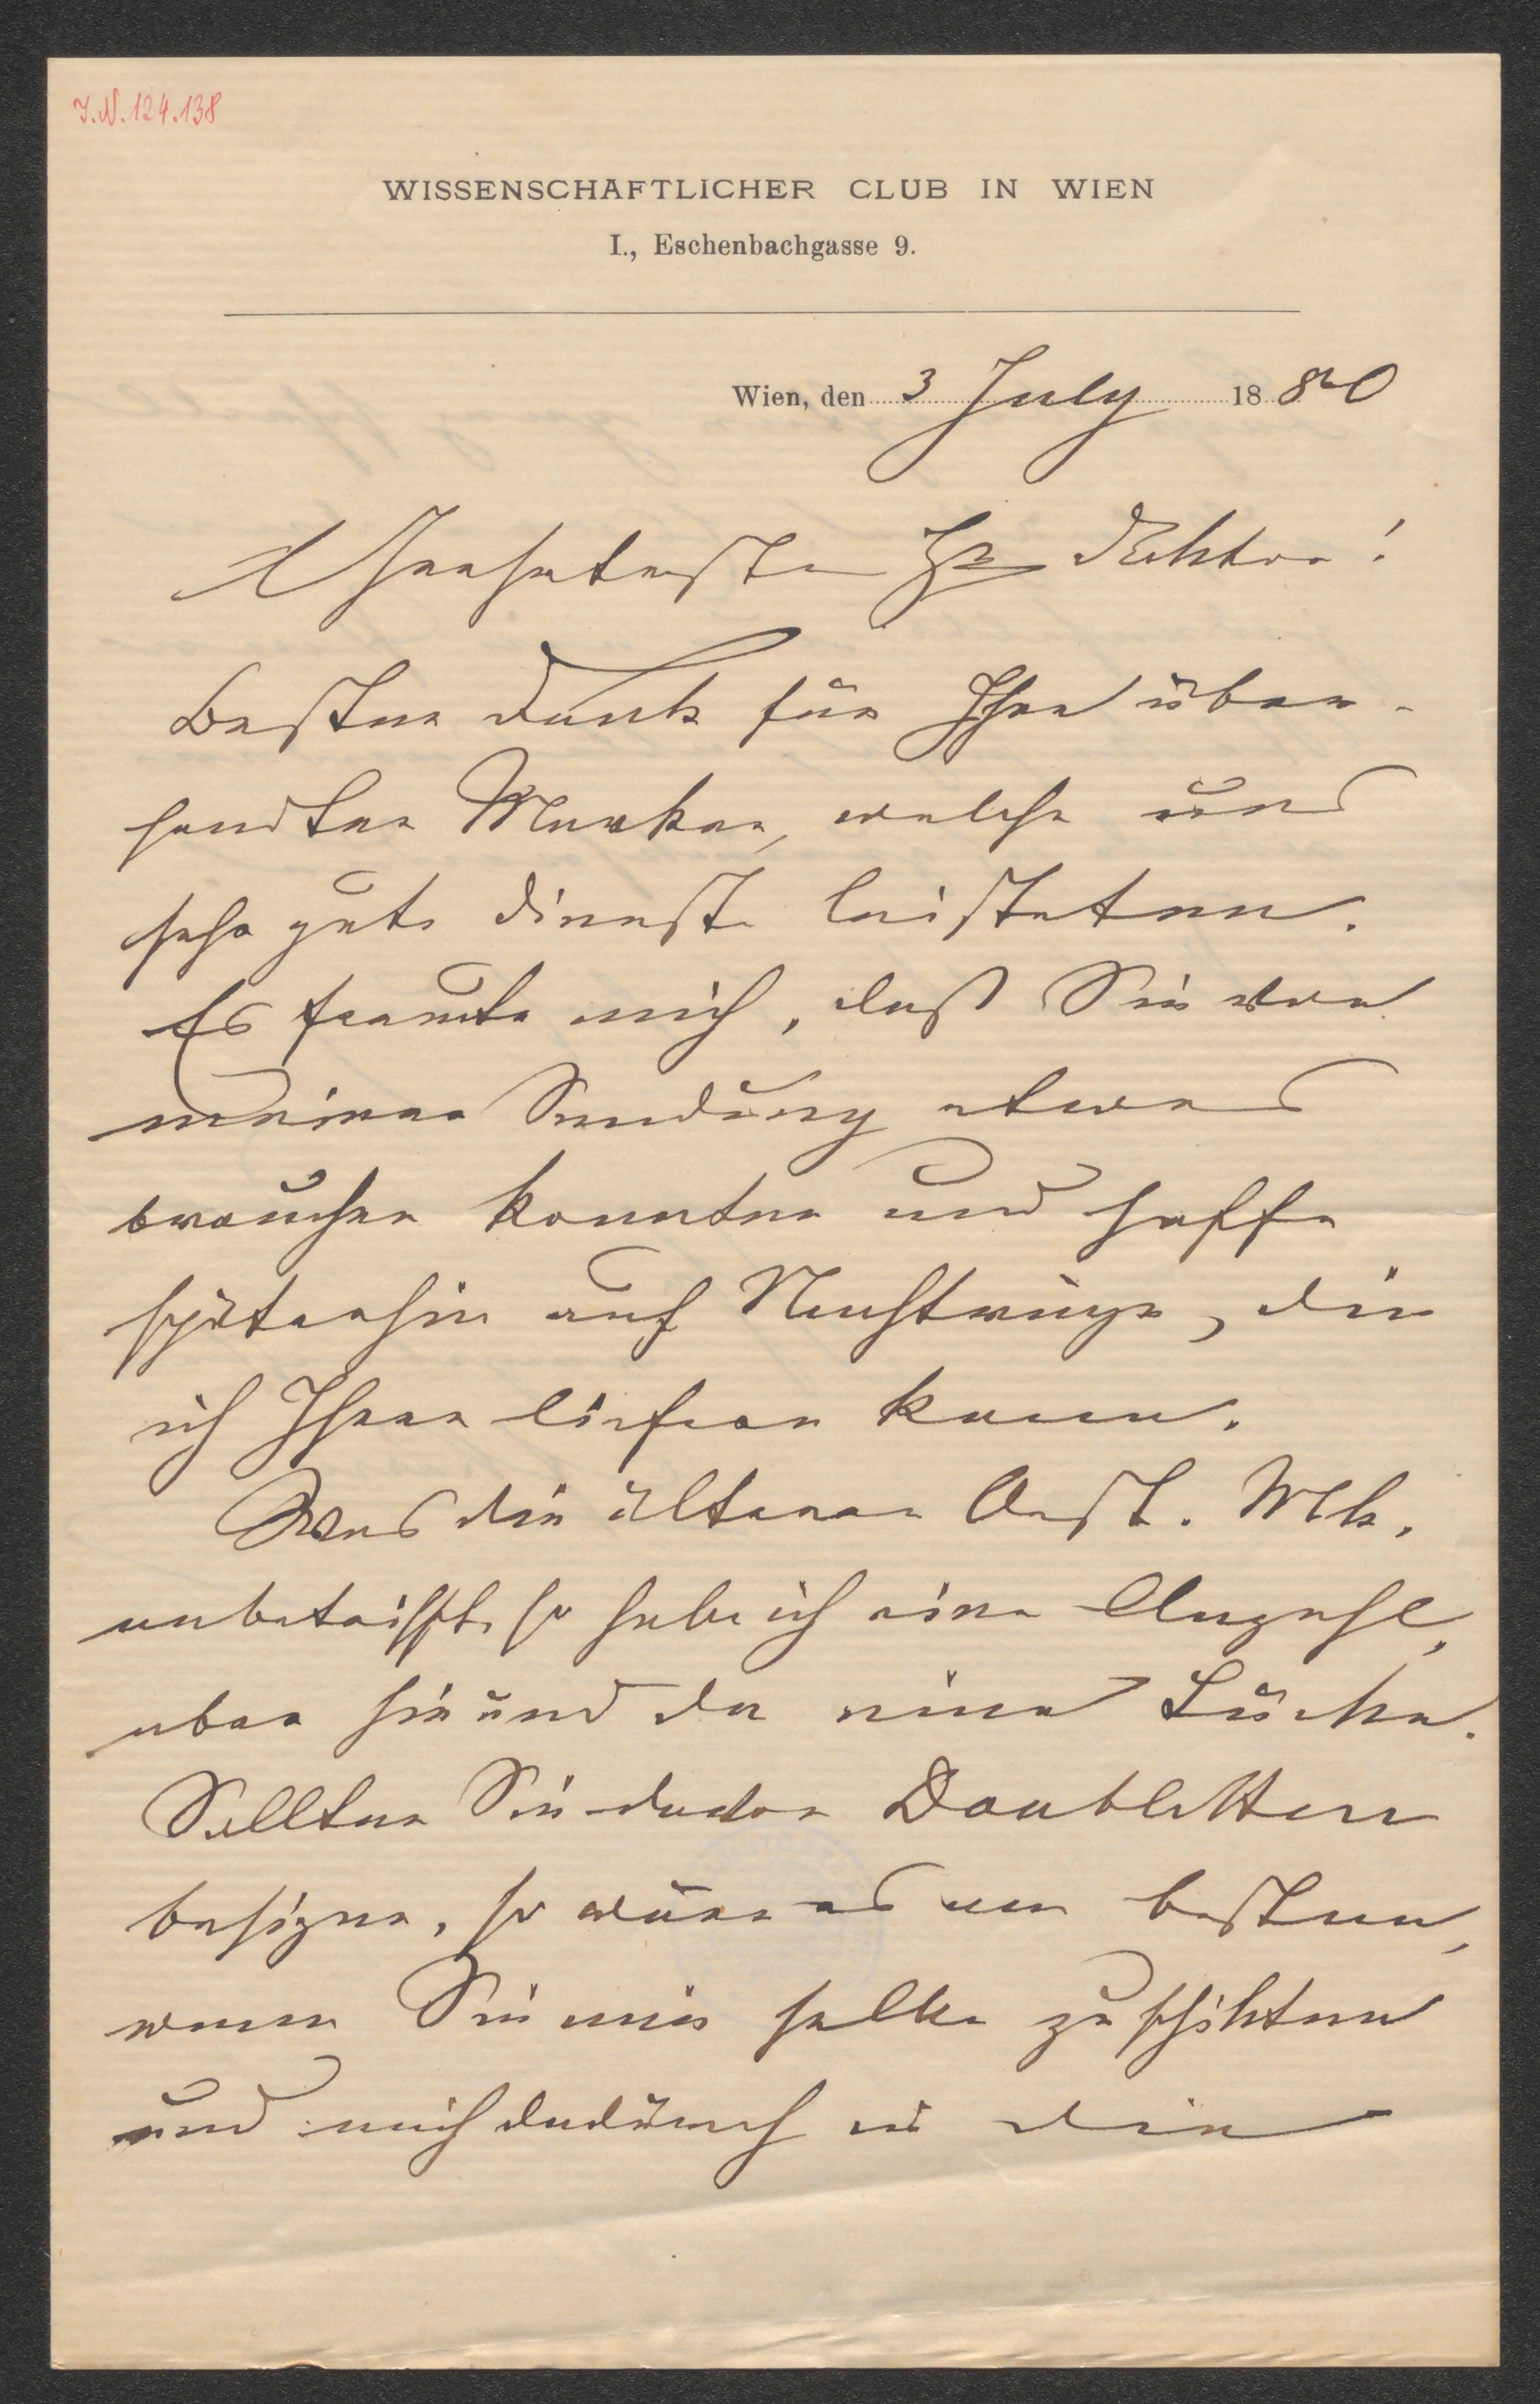 J.N. 124.138
WISSENSCHAFTLICHER CLUB IN WIEN
I., Eschenbachgasse 9.
Wien, den 3 July 1880
Verehrtester Hr Doktor!
Besten Dank für Ihre über-
sandten Marken, welche uns
sehr gute Dienste leisteten.
Es freute mich, daß Sie von
meiner Sendung etwas
brauchen konnten und hoffe
späterhin auf Nachträge, die
ich Ihnen liefern kann.
Was die älteren Oest. Mk.
anbetrifft, so habe ich eine Anzahl,
aber hie und da eine Lücke.
Sollten Sie davon Doubletten
besizen, so wäre es am besten,
wenn Sie mir selbe zuschikten
und mich dadurch in die